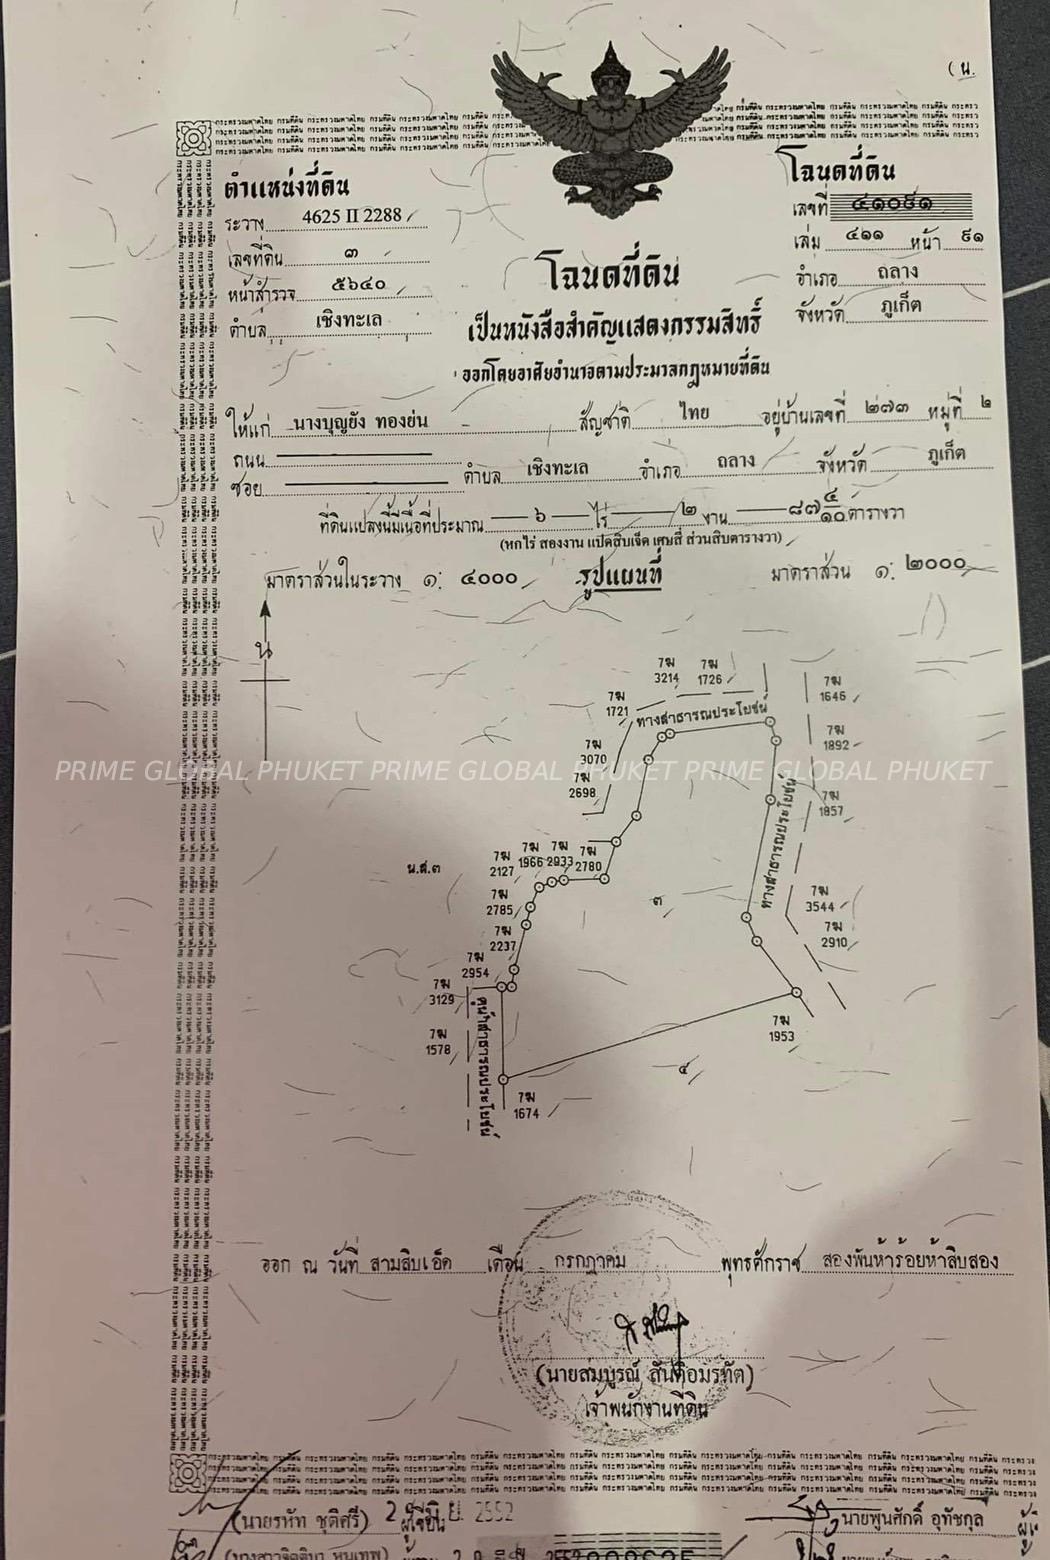 ( น.
ตำแหน่งที่ดิน
ระวาง 4625 II 2288
เลขที่ดิน ๓
หน้าสำรวจ ๕๖๔๐
ตำบล เชิงทะเล
โฉนดที่ดิน
เลขที่ ๔๑๐๙๑
เล่ม ๔๑๑ หน้า ๙๑
อำเภอ ถลาง
จังหวัด ภูเก็ต
โฉนดที่ดิน
เป็นหนังสือสำคัญแสดงกรรมสิทธิ์
ออกโดยอาศัยอำนาจตามประมวลกฎหมายที่ดิน
ให้แก่ นางบุญยัง ทองย่น สัญชาติ ไทย อยู่บ้านเลขที่ ๒๗๓ หมู่ที่ ๒
ถนน
ซอย ตำบล เชิงทะเล อำเภอ ถลาง จังหวัด ภูเก็ต
ที่ดินแปลงนี้มีเนื้อที่ประมาณ ๖ ไร่ ๒ งาน ๘๗ ๔/๑๐ ตารางวา
(หกไร่ สองงาน แปดสิบเจ็ด เศษสี่ ส่วนสิบตารางวา)
มาตราส่วนในระวาง ๑: ๔๐๐๐ รูปแผนที่ มาตราส่วน ๑: ๒๐๐๐
น
7ฆ 3214
7ฆ 1726
7ฆ 1646
7ฆ 1721
ทางสาธารณประโยชน์
7ฆ 1892
7ฆ 3070
PRIME GLOBAL PHUKET PRIME GLOBAL PHUKET PRIME GLOBAL PHUKET
7ฆ 2698
7ฆ 1857
ทางสาธารณประโยชน์
น.ส.๓
7ฆ 2127
7ฆ 1966
7ฆ 2033
7ฆ 2780
7ฆ 2785
๓
7ฆ 3544
7ฆ 2237
7ฆ 2910
7ฆ 2954
7ฆ 3129
7ฆ 1953
7ฆ 1578
คูน้ำสาธารณประโยชน์
๔
7ฆ 1674
ออก ณ วันที่ สามสิบเอ็ด เดือน กรกฎาคม พุทธศักราช สองพันห้าร้อยห้าสิบสอง
(นายสมบูรณ์ สันติอมรทัต)
เจ้าพนักงานที่ดิน
(นายรหัท ชุติศรี) ผู้เขียน 2552
นายพูนศักดิ์ อุทัชกุล